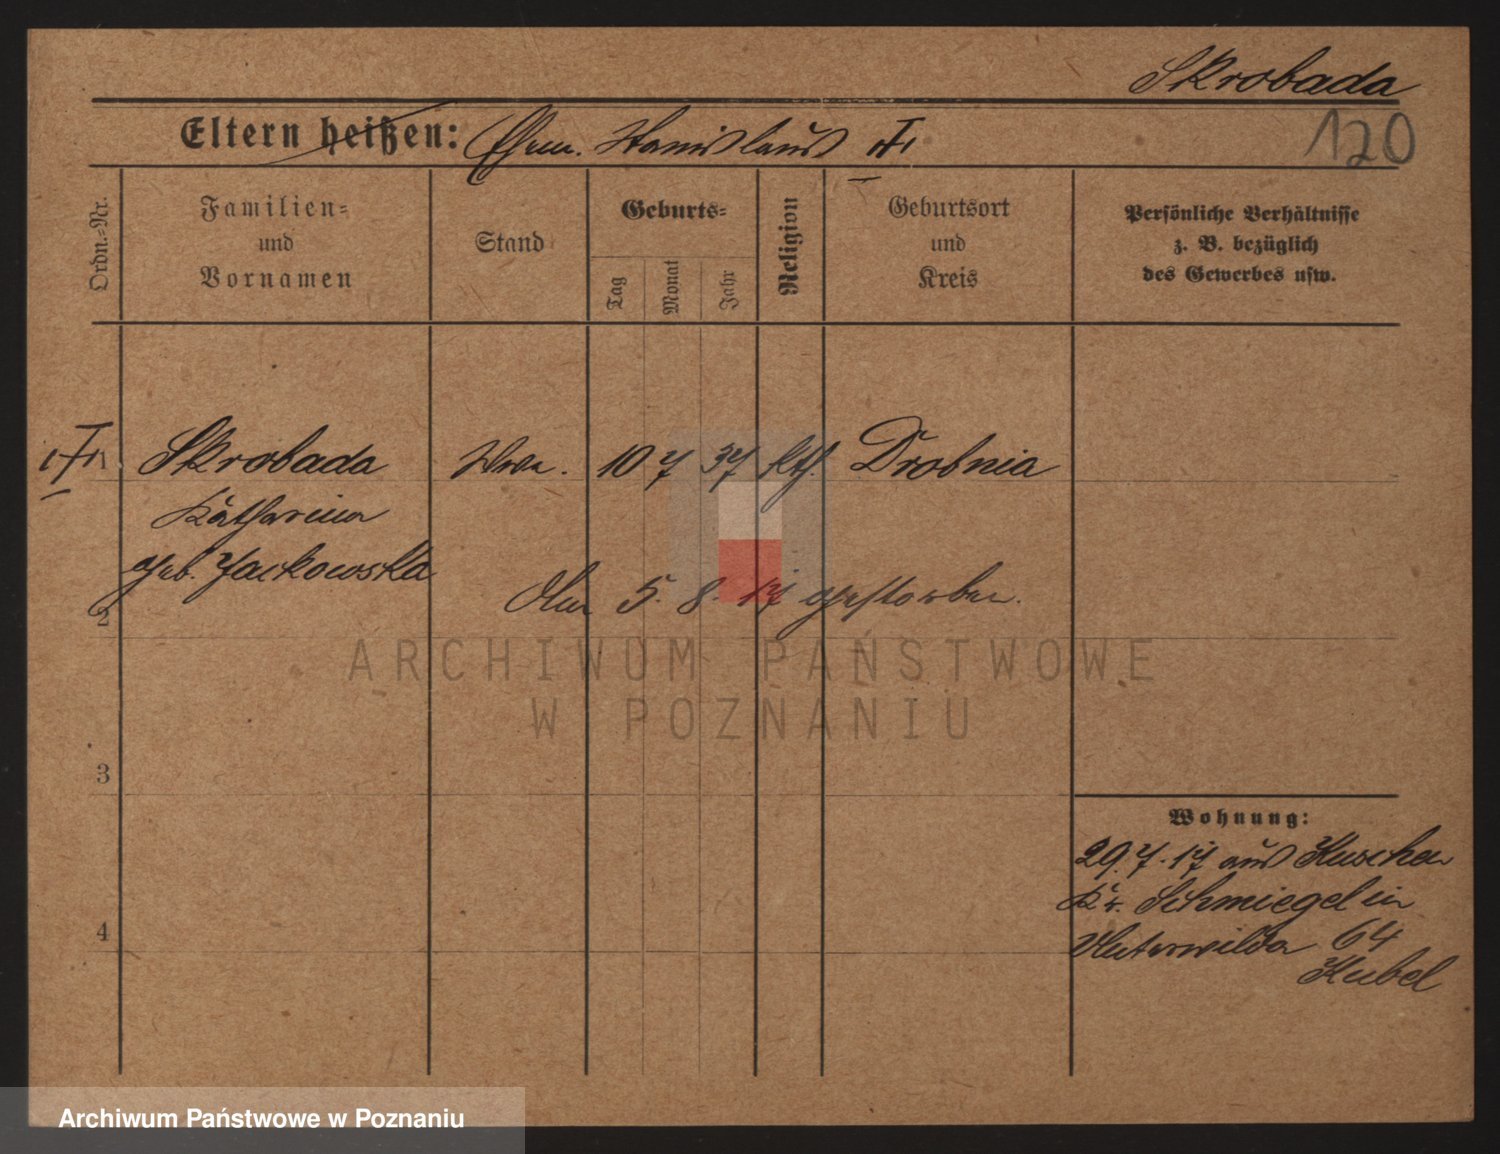 Skrobada
Eltern heißen: Ehem. Stanislaus
120
Ordn.-Nr.
Familien-
und
Vornamen
Stand
Geburts-
Tag
Monat
Jahr
Religion
Geburtsort
und
Kreis
Persönliche Verhältnisse
z. B. bezüglich
des Gewerbes usw.
1 Skrobada Wwe. 10 7 37 kth. Drobnia
Katharina
geb. Jackowska
Am 5. 8. 17 gestorben.
2
ARCHIWUM PAŃSTWOWE
W POZNANIU
3
Wohnung:
29. 7. 17 aus Kuschen
Kr. Schmiegel in
Unterwilda 64
Kubel
4
Archiwum Państwowe w Poznaniu